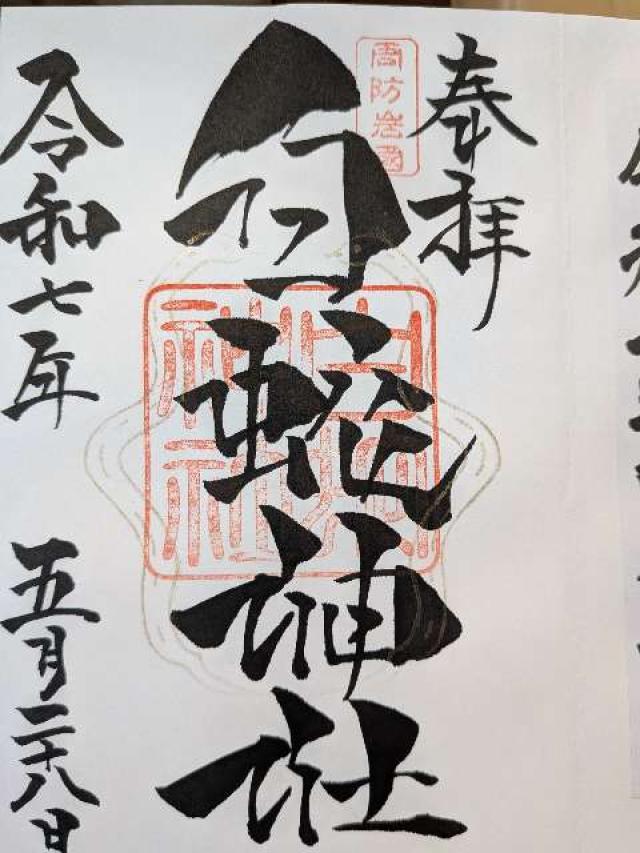 奉拝
周防岩国
白蛇神社
令和七年 五月二十八日